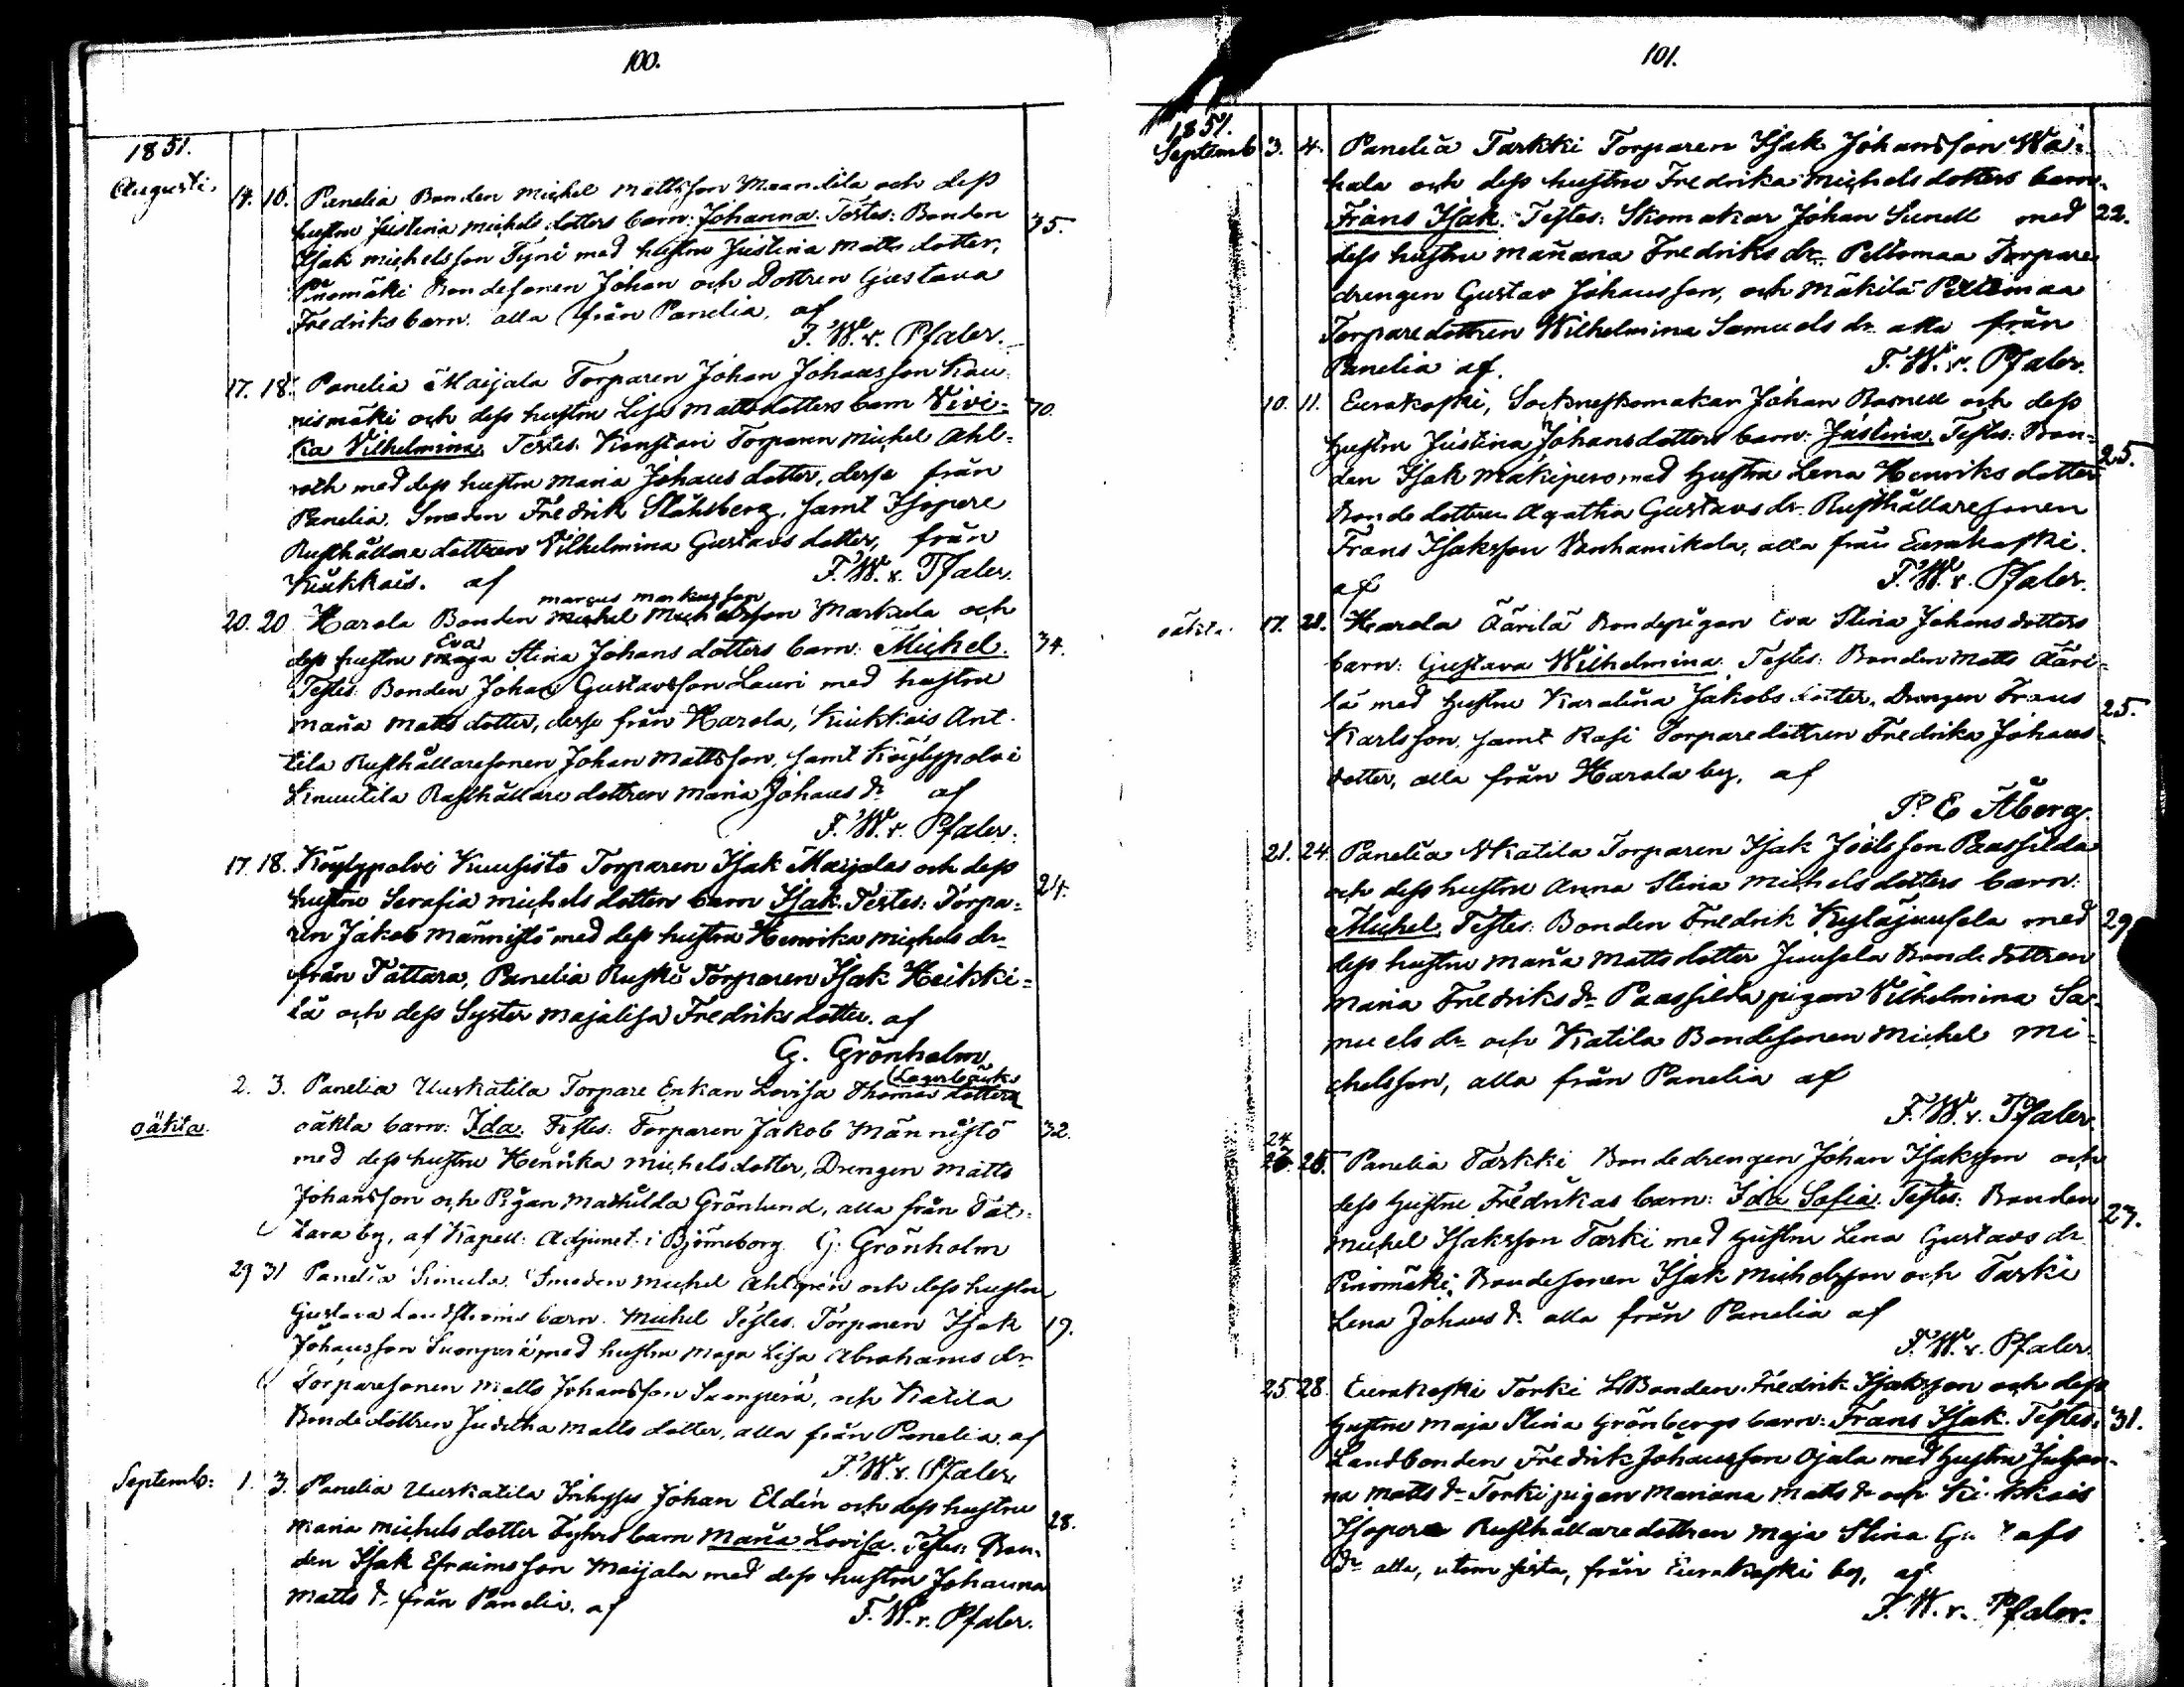 100.
1851.
Augusti.
14. 16. Panelia Bonden Michel Mattsson Maantila och dess
hustru Justina Michels dotters barn: Johanna. Testes: Bonden 35.
Isak Michelsson Tyni med hustru Justina Matts dotter,
Pinomäki Bondesonen Johan och Dottren Gustava
Fredriks barn. alla från Panelia, af
F. W. v. Pfaler.
17. 18. Panelia Maijala Torparen Johan Johansson Kau-
nismäki och dess hustru Lisa Mattsdotters barn Vivi- 30.
ka Vilhelmina. Testes: Konstari Torparen Michel Ahl-
roth med dess hustru Maria Johans dotter, desse från
Panelia. Smeden Fredrik Ståhlberg, samt Isopere
Rusthållare dottren Vilhelmina Gustavs dotter, från
Kiukkais. af F. W. v. Pfaler.
marcus markusson
20. 20 Harola Bonden Michel Michelsson Markula och
Eva
dess hustru Maja Stina Johans dotters barn: Michel. 34.
Testes: Bonden Johan Gustavsson Lauri med hustru
Maria Matts dotter, desse från Harola, Kiukkais Ant-
tila Rusthållaresonen Johan Mattsson, samt Köylypolvi
Knuutila Rusthållare dottren Maria Johans dr af
F. W. v. Pfaler.
17. 18. Köylypolvi Kuusisto Torparen Isak Maijalas och dess
hustru Serafia Michels dotters barn Isak. Testes: Torpa- 24.
ren Jakob Männistö med dess hustru Henrika Michels dr
från Tattara, Panelia Ruski Torparen Isak Heikki-
lä och dess Syster Majalisa Fredriks dotter. af
G. Grönholm
2. 3. Panelia Uuskatila Torpare Enkan Lovisa Thomas dotters
oäkta
oäkta barn: Ida. Testes: Torparen Jakob Männistö 32.
med dess hustru Henrika Michels dotter, Drengen Matts
Johansson och Pigan Mathilda Grönlund, alla från Tat-
tara by, af Kapell: Adjunct: i Björneborg G. Grönholm
29 31 Panelia Simula Smeden Michel Ahlgrén och dess hustru
Gustava Landströms barn. Michel Testes. Torparen Isak 19.
Johansson Suonperä, med hustru Maja Lisa Abrahams dr
Torparesonen Matts Johansson Suonperä, och Katila
Bondedottren Juditha Matts dotter, alla från Panelia. af
F. W. v. Pfaler.
Septemb: 1. 3. Panelia Uuskatila Inhyses Johan Eldén och dess hustru
Maria Michels dotter Tyhrs barn Maria Lovisa. Testes: Bon- 28.
den Isak Efraimsson Maijala med dess hustru Johanna
Matts dr från Panelia. af F. W. v. Pfaler.
101.
1851.
Septemb 3. 4. Panelia Tarkki Torparen Isak Johansson Wä-
hala och dess hustru Fredrika Michels dotters barn.
Frans Isak. Testes: Skomakar Johan Sundell med 22.
dess hustru Mariana Fredriks dr. Peltomaa Torpare
drengen Gustav Johansson, och Mäkilä Peltomaa
Torparedottren Wilhelmina Samuels dr alla från
Panelia af. F. W. v. Pfaler.
10. 11. Eurakoski, Sockneskomakar Johan Rosnell och dess
Hustru Justina Johans dotters barn: Justina. Testes: Bon- 25.
den Isak Mäkipero med Hustru Lena Henriks dotter
Bonde dottren Agatha Gustavs dr. Rusthållaresonen
Frans Isaksson Wanhamikola, alla från Eurakoski.
af F. W. v. Pfaler.
oäkta. 17. 28. Harola Äärilä Bondepigan Eva Stina Johans dotters
barn: Gustava Wilhelmina. Testes: Bonden Matts Ääri-
lä med Hustru Karolina Jakobs dotter, Drengen Frans 25.
Karlsson, samt Rasi Torparedottren Fredrika Johans-
dotter, alla från Harola by, af
P. E Åberg.
21. 24. Panelia Katila Torparen Isak Joelsson Paassilda
och dess hustru Anna Stina Michels dotters barn:
Michel. Testes: Bonden Fredrik Kyläjuusela med 29
dess hustru Maria Matts dotter Juusela Bonde dottren
Maria Fredriks dr Paassilda pigan Vilhelmina Sa-
muels dr och Katila Bondesonen Michel Mi-
chelsson, alla från Panelia af
F. W. v. Pfaler.
24
26. Panelia Tarkki Bondedrengen Johan Isaksson och
dess Hustru Fredrikas barn: Ida Sofia. Testes: Bonden 27.
Michel Isaksson Tarki med Hustru Lena Gustavs dr
Pinomäki Bondesonen Isak Michelsson och Tarki
Lena Johans dr alla från Panelia af
F. W. v. Pfaler.
25 28. Eurakoski Torki LBonden Fredrik Isaksson och dess
Hustru Maja Stina Grönbergs barn: Frans Isak. Testes: 31.
Landbonden Fredrik Johansson Ojala med Hustru Johan-
na Matts dr Torki pigan Mariana Matts dr och Kiukkais
Isopere Rusthållaredottren Maja Stina
dr alla, utom sista, från Eurakoski by, af
F. W. v. Pfaler.